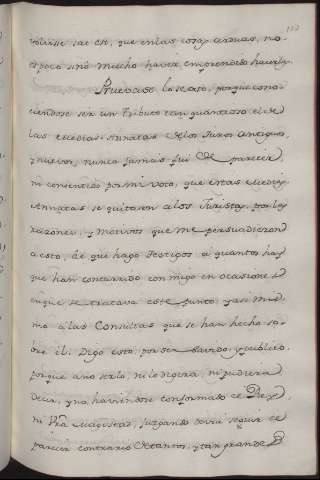 que en las cosas arduas, no
es poco sino mucho haver emprendido hacerlas.
porque cono-
ciendose ser un tributo tan quantioso el de
las medias Annatas de los Juros antiguos,
y nuevos, nunca jamas fui de parecer,
ni consentido por mi voto, que estas medias
Annatas se quitasen a los Juristas por las
razones, y motivos que me persuadieron
a esto, de que hago testigos a quantos hay
que han concurrido conmigo en ocasiones
en que se tratava este punto, y asi mis-
mo a las Consultas que se han hecho so-
bre el: Digo esto por ser sabido, y publico,
porque a no serlo, ni lo dixera, ni pudiera
decir, y no haviendose conformado el Rey
ni Vra Magestad, juzgando sería seguir el
parecer contrario de tantos, y tan grandes